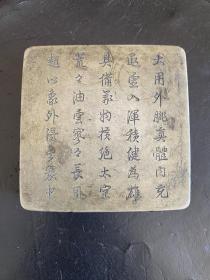 大用外腓真體內充
返虛入渾積健為雄
具備萬物橫絕太空
荒々油雲寥々長風
超以象外得其環中